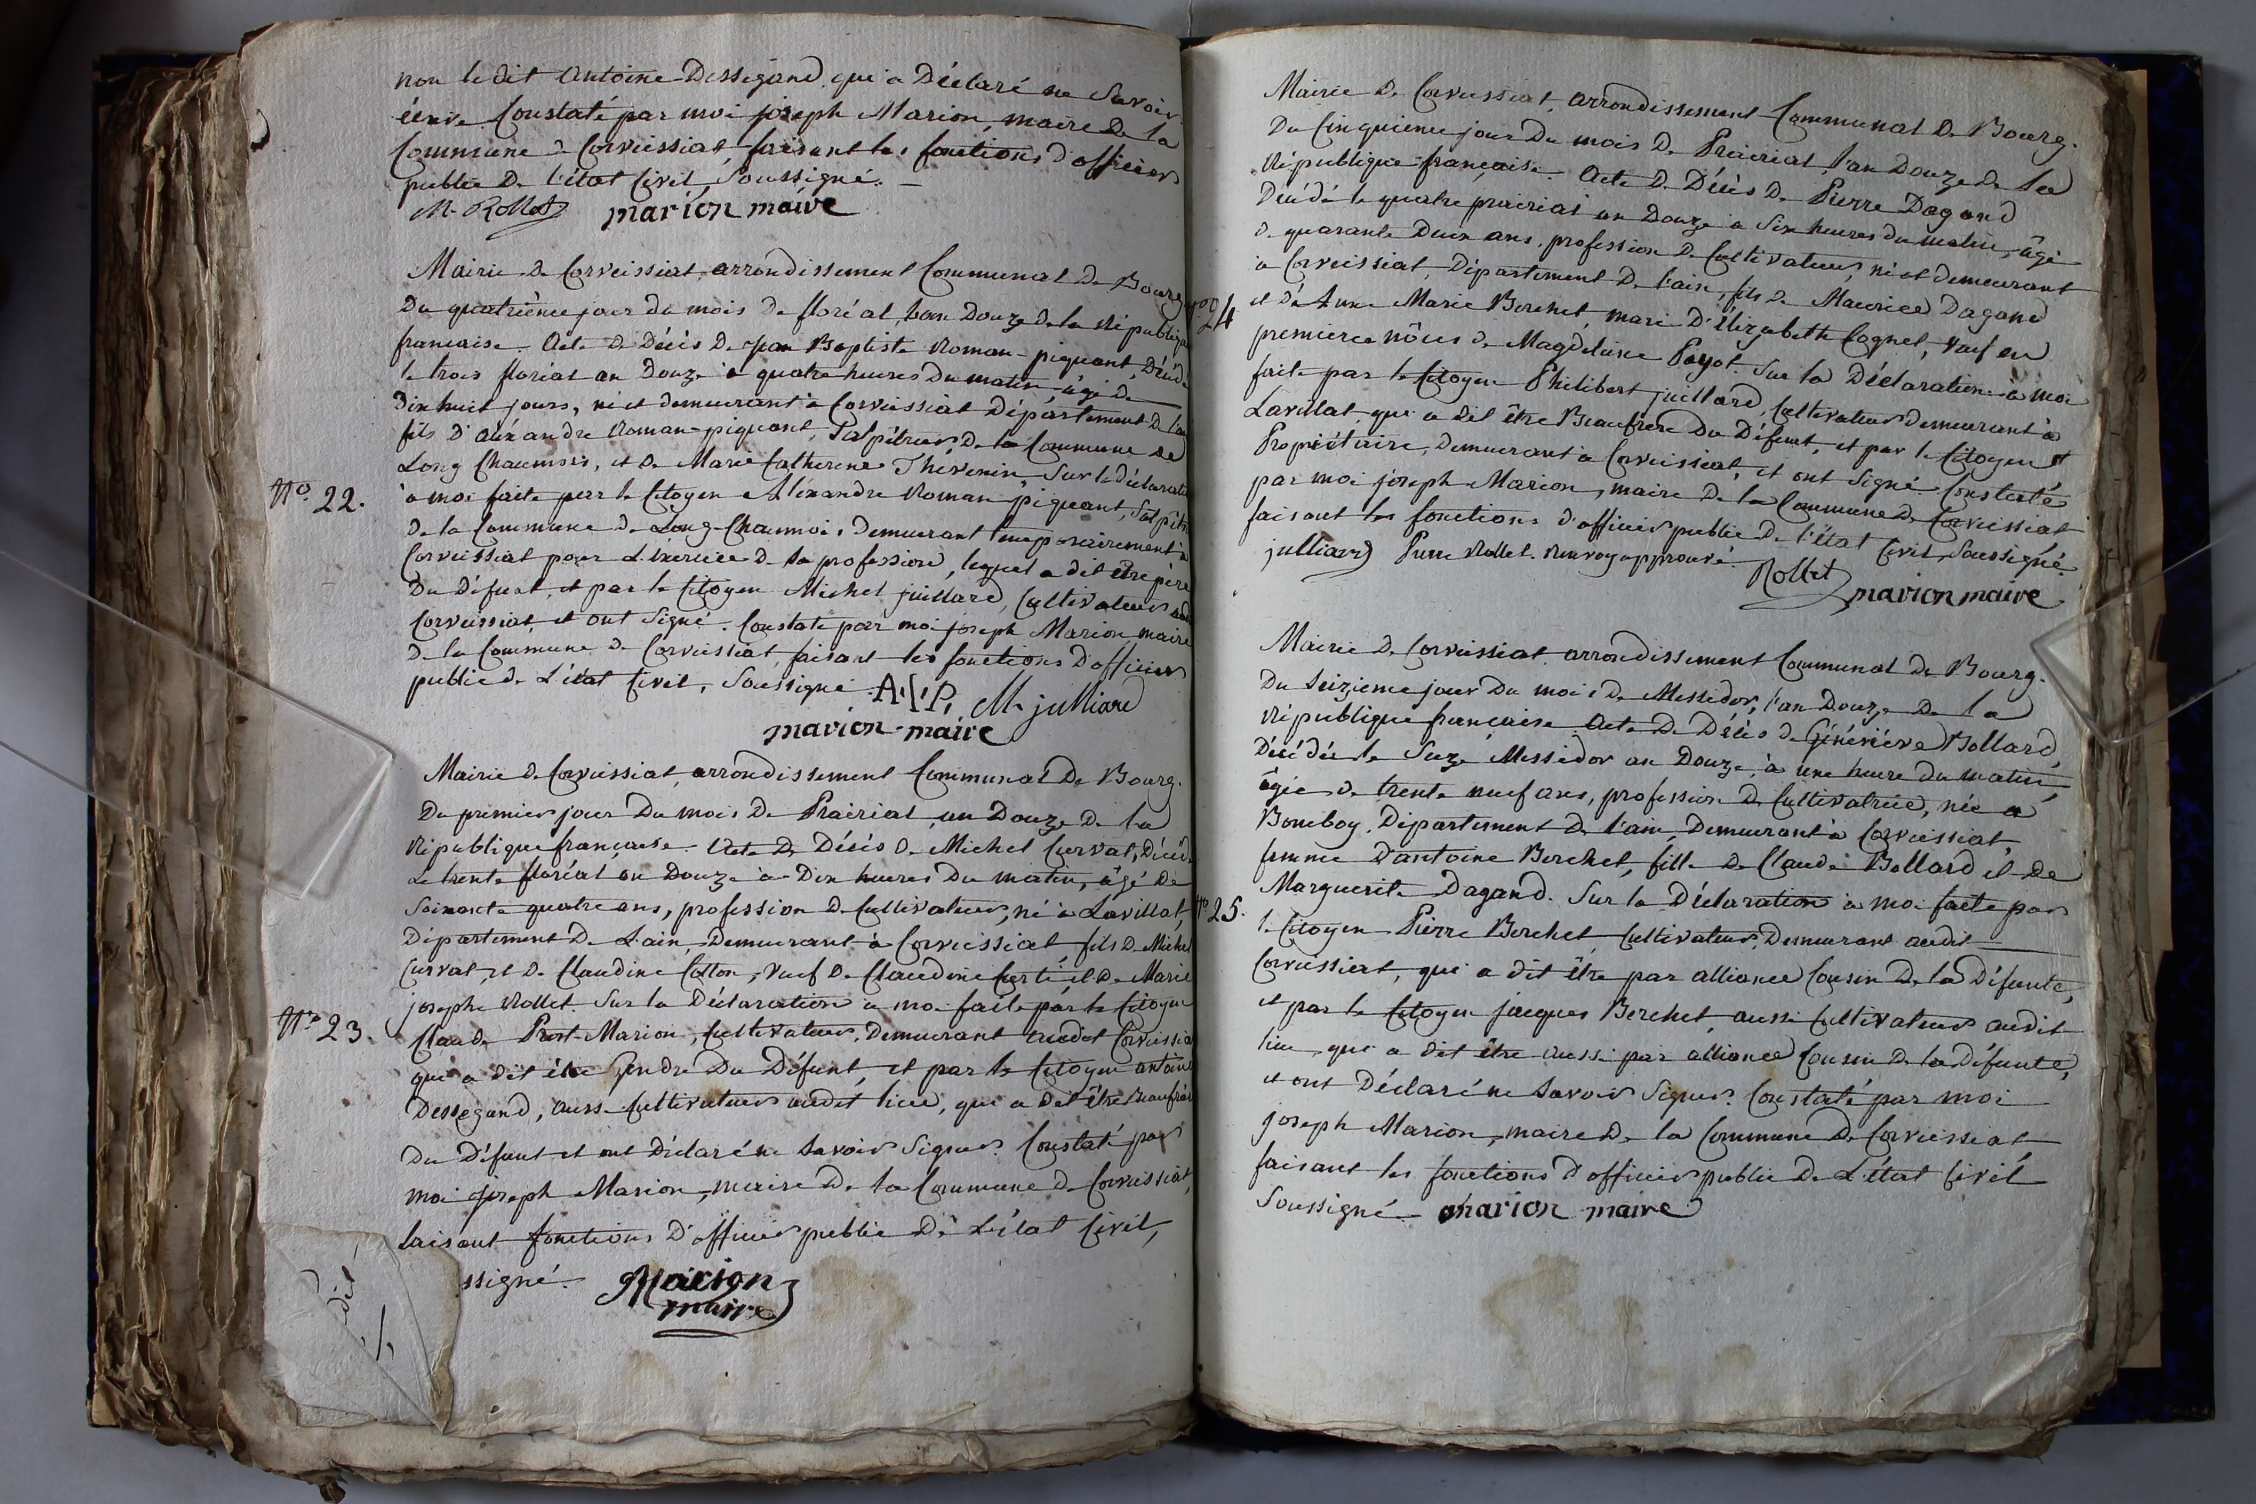 non ledit Antoine Dessegand qui a Déclaré ne Savoir
écrire Constaté par moi joseph Marion, maire De la
Commune De Corveissiat, faisant les fonctions d'officier
public De l'état Civil Soussigné.
M. Rollet marion maire
Mairie De Corveissiat, arrondissement Communal De Bourg
Du quatrième jour du mois De floréal, l'an Douze De la Républiqu
francaise. Acte De Décès De jean Baptiste Roman-piquant, Décédé
le trois floréal an Douze à quatre heures Du matin, âgé de
Dix huit jours, né et demeurant à Corveissiat Département De l'ain
fils D'alexandre Roman-piquant, Salpêtrier De la Commune de
Long Chaumois, et De Marie Catherine Thévenin Sur la déclaration
N.o 22.
à moi faite par le Citoyen Alexandre Roman-piquant, Salpêtr
de la Commune De Long-Chaumois Demeurant temporairement à
Corveissiat pour L'éxercice De Sa profession, lequel a dit être père
Du Défunt, et par le Citoyen Michel juillard, Cultivateur audit
Corveissiat, et ont Signé. Constaté par moi joseph Marion maire
De la Commune De Corveissiat, faisant les fonctions D'officier
public De L'état Civil, Soussigné. A.R.P. M. julliard
marion-maire
Mairie De Corveissiat, arrondissement Communal De Bourg.
Du premier jour Du mois De Prairial, an Douze De la
République française. Acte De Décès De Michel Curvat, Décéd
Le trente floréal an Douze à Dix heures Du matin, âgé De
Soixante quatre ans, profession De Cultivateur, né à Lavillat,
Département De L'ain, Demeurant à Corveissiat, fils De Michel
Curvat, et De Claudine Cotton, veuf De Claudine Curti et De Marie
josephe Rollet. Sur la Déclaration à moi faite par le Citoyen
N.o 23.
Claude Prost-Marion, Cultivateur, Demeurant audit Corveissia
qui a dit être gendre Du Défunt, et par le Citoyen antoine
Dessegand, aussi Cultivateur audit lieu, qui a dit être Beaufrère
Du Défunt et ont Déclaré ne Savoir Signer. Constaté par
moi joseph Marion, maire De la Commune De Corveissiat,
faisant fonctions D'officier public De L'état Civil,
ssigné. Marion
maire
Mairie De Corveissiat, arrondissement Communal De Bourg.
Du Cinquieme jour Du mois De Prairial, l'an Douze De la
République française. Acte De Décès De Pierre Dagand
Décédé le quatre prairial an Douze à Six heures du matin, âgé
de quarante Deux ans, profession De Cultivateur, né et demeurant
à Corveissiat, Département De l'ain, fils De Maurice Dagand
N.o 24
et de Anne Marie Berchet, mari D'Elizabeth Cognet, veuf en
premiere nôces De Magdelaine Payot. Sur la Déclaration à moi
faite par le Citoyen Philibert juillard, Cultivateur demeurant à
Lavillat, qui a dit être Beaufrère Du Défunt, et par le Citoyen
Propriétaire, Demeurant à Corveissiat, et ont Signé. Constaté
par moi joseph Marion, maire De la Commune De Corveissiat
faisant les fonctions d'officier public De l'état Civil, Soussigné.
julliard Pierre Rollet. Renvoy approuvé. Rollet
marion maire
Mairie De Corveissiat, arrondissement Communal De Bourg.
Du Seizieme jour Du mois De Messidor, l'an Douze De la
République française Acte De Décès De Généviéve Bollard,
Décédée le Seize Messidor an Douze, à une heure Du matin,
âgée De trente neuf ans, profession De Cultivatrice, née à
Boneboy, Département De l'ain, Demeurant à Corveissiat,
femme D'antoine Berchet, fille De Claude Bollard et De
Marguerite Dagand. Sur la Déclaration à moi faite par
N.o 25.
le Citoyen Pierre Berchet, Cultivateur, Demeurant audit
Corveissiat, qui a dit être par alliance Cousin De la Défunte,
et par le Citoyen jacques Berchet, aussi Cultivateur audit
lieu, qui a dit être aussi par alliance Cousin De la Défunte,
et ont Déclaré ne Savoir Signer. Constaté par moi
joseph Marion, maire De la Commune De Corveissiat
faisant les fonctions d'officier public De L'état Civil
Soussigné. marion maire